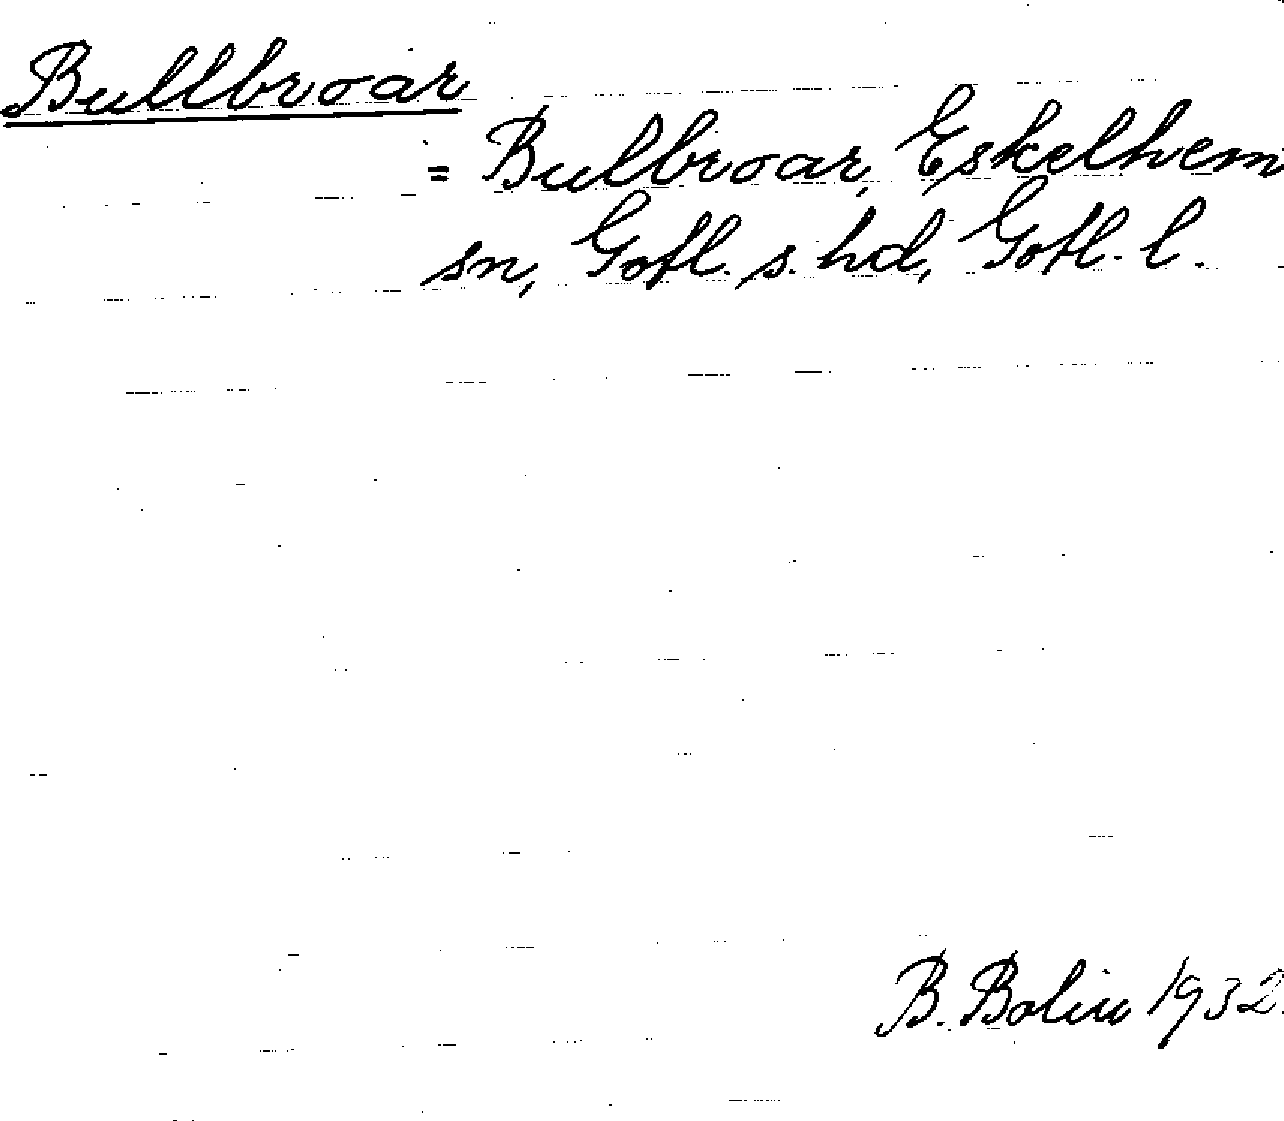 Bullbroar
= Bulbroar, Eskelhem
sn, Gotl. s. hd, Gotl. l.
B. Bolin 1932.